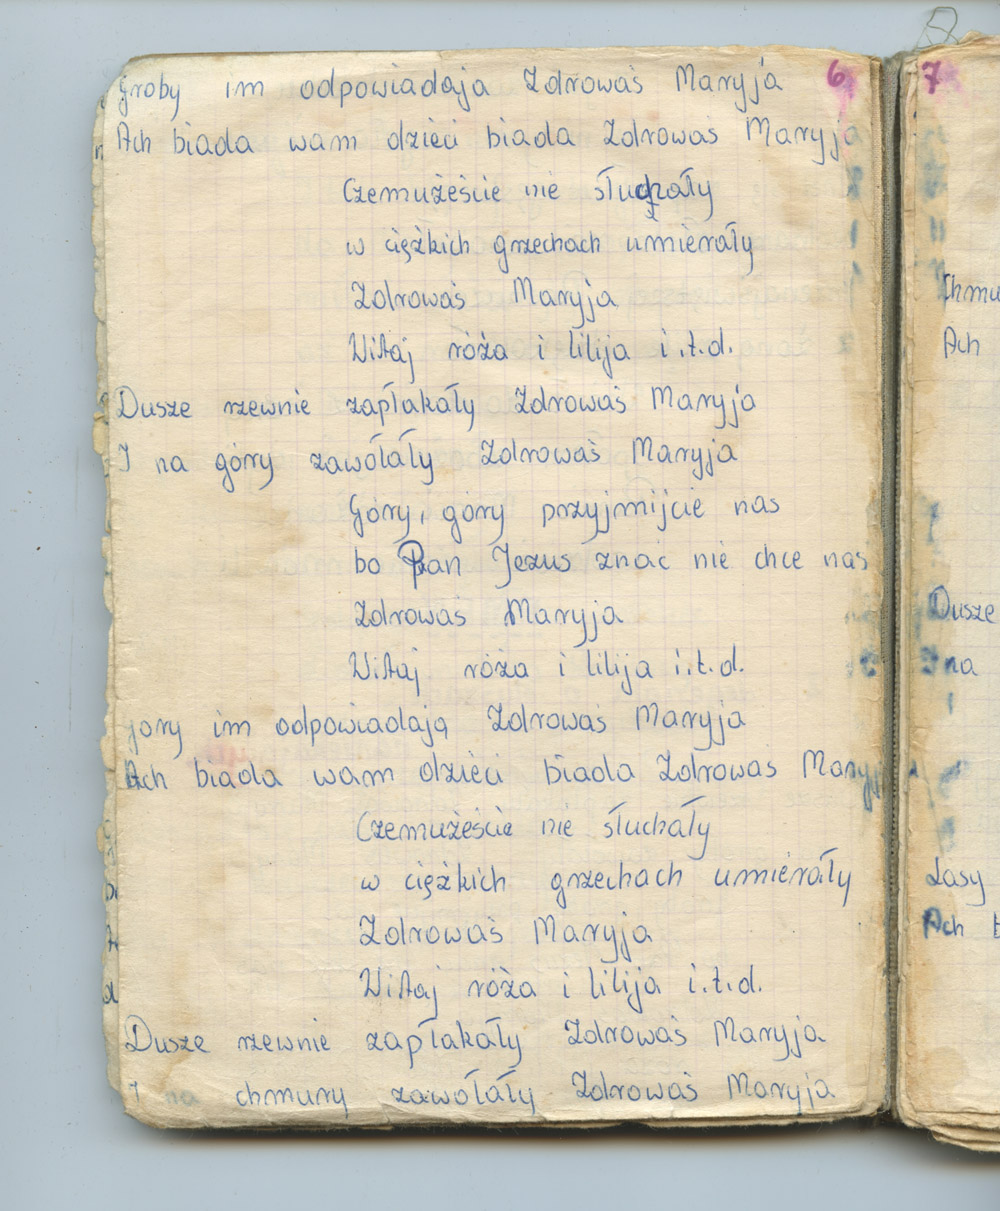 6
Groby im odpowiadaja Zdrowaś Maryja
Ach biada wam dzieci biada Zdrowaś Maryja
Czemużeście nie słuchały
w ciężkich grzechach umierały
Zdrowaś Maryja
Witaj róża i lilija i.t.d.
Dusze rzewnie zapłakały Zdrowaś Maryja
I na góry zawołały Zdrowaś Maryja
Góry, góry przyjmijcie nas
bo Pan Jezus znać nie chce nas
Zdrowaś Maryja
Witaj róża i lilija i.t.d.
góry im odpowiadają Zdrowaś Maryja
Ach biada wam dzieci biada Zdrowaś Maryj
Czemużeście nie słuchały
w ciężkich grzechach umierały
Zdrowaś Maryja
Witaj róża i lilija i.t.d.
Dusze rzewnie zapłakały Zdrowaś Maryja
I na chmury zawołały Zdrowaś Maryja
7
Chmu
Ach
Dusze
na
Lasy
Ach b